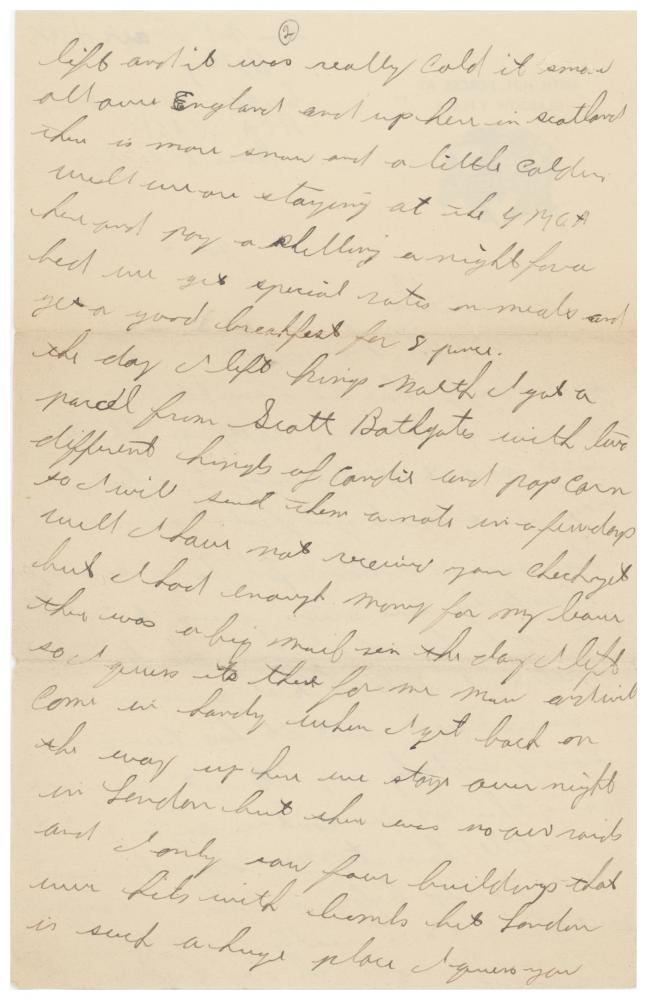 2
left and it was really cold it snow
all over England and up here in scotland
ther is more snow and a little colder.
well we are staying at the YMCA
here and pay a shilling a night for a
bed we get special rates on meals and
get a good breakfest for 8 pence.
the day I left Kings North I got a
parcel from Scott Bathgates with two
different kinds of candie and pop corn
so I will send them a note in a few days
well I have not receive your check yet
but I had enough money for my leave
ther was a big mail in the day I left
so I guess its ther for me now and will
come in handy when I get back on
the way up here we stay over night
in London but ther was no air raids
and I only saw four buildings that
were hits with bombs but London
is such a huge place I guess you